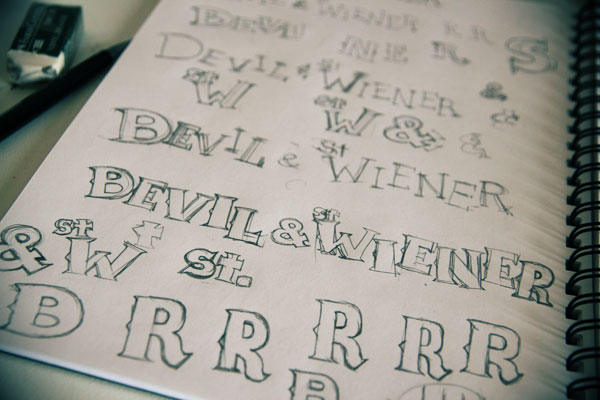 & WIENER R R
DEVI INE R. S
DEVIL & st WIENER &
st W st W & & &
DEVIL & st WIENER
DEVIL & st WIENER
& st W t st.
B R R R R R
R